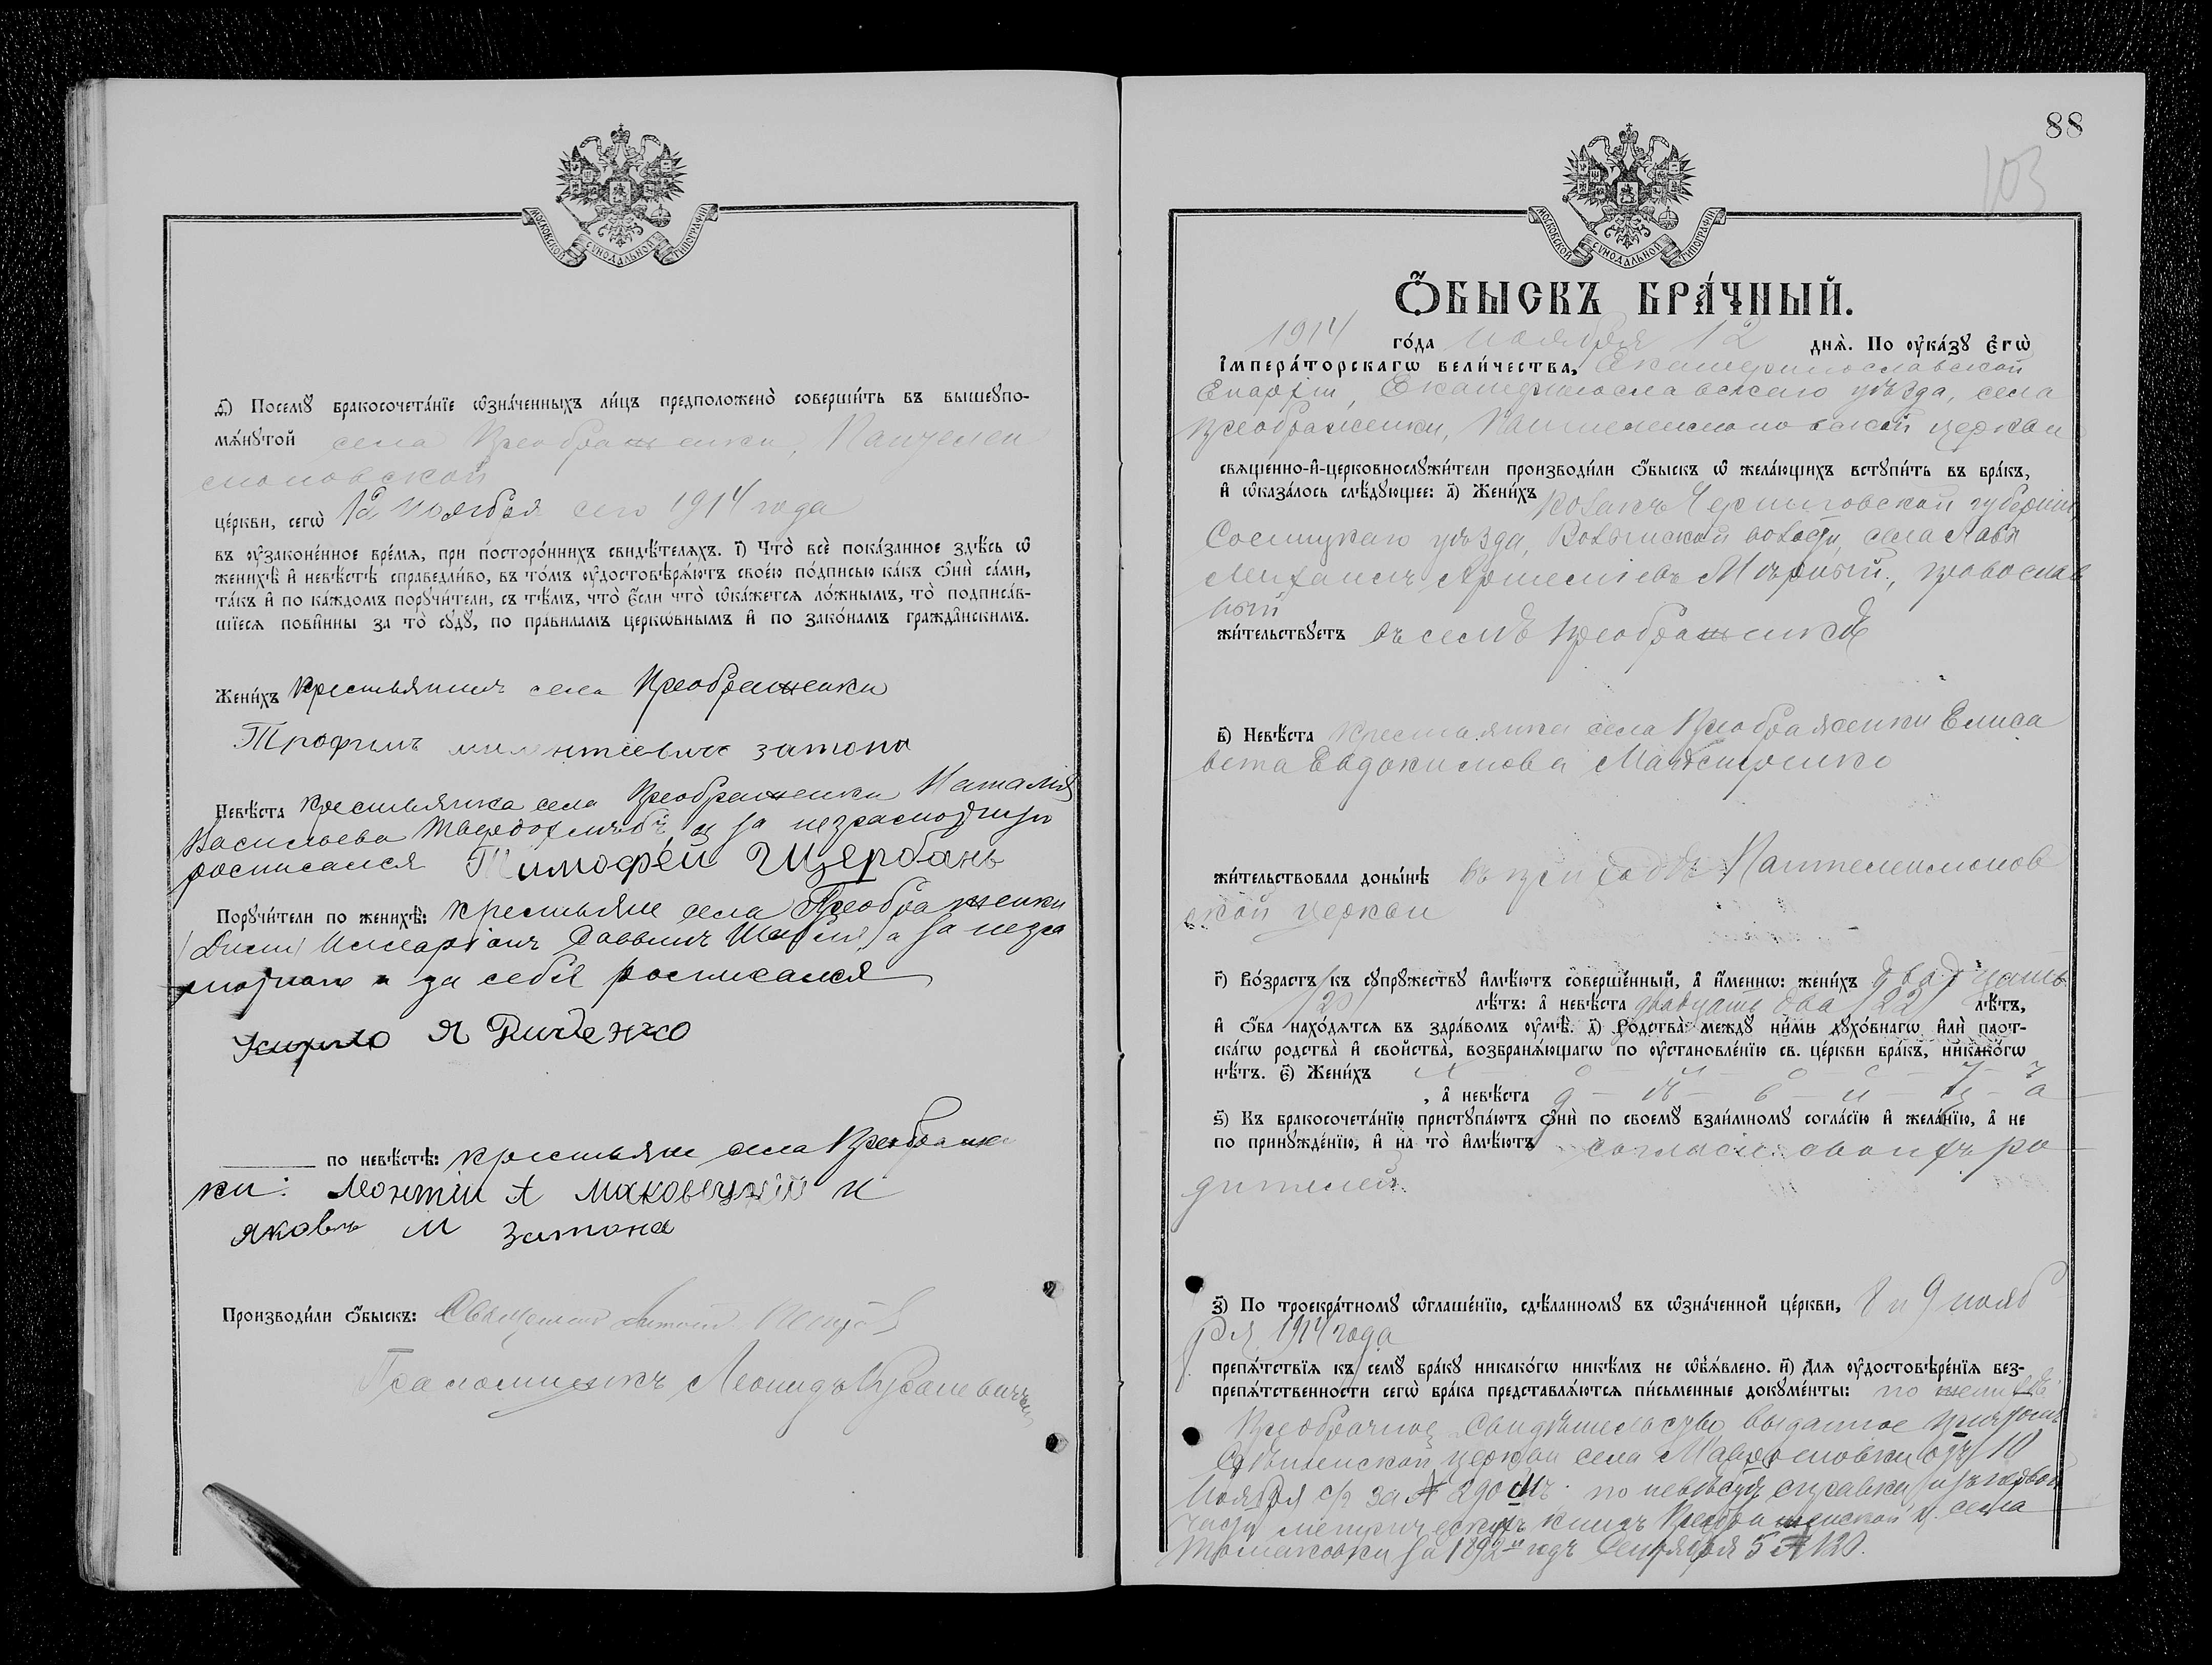 МОСКОВСКОЙ СѴНОДАЛЬНОЙ ТИПОГРАФІИ
ѳ҃) Посемꙋ бракосочета́нїе ѡзна́ченныхъ ли́цъ предположено̀ соверши́ть въ вышеꙋпо-
мѧ́нꙋтой села Преображенки, Пантелей
моновской
це́ркви, сегѡ̀ 12 ноября сего 1914 года
въ ᲂузаконе́нное вре́мѧ, при посторо́ннихъ свидѣ́телѧхъ. і҃) Что̀ всѐ пока́занное здѣ́сь ѡ
женихѣ̀ и҆ невѣ́стѣ справедли́во, въ то́мъ ᲂудостовѣрѧ́ютъ свое́ю по́дписью ка́къ ѻ҆нѝ са́ми,
та́къ и҆ по ка́ждомъ порꙋчи́тели, съ тѣ́мъ, что̀ є҆́сли что̀ ѡка́жетсѧ ло́жнымъ, то̀ подписа́в-
шїесѧ пови́нны за то̀ сꙋдꙋ̀, по пра́виламъ церко́внымъ и҆ по зако́намъ гражда́нскимъ.
Жени́хъ крестьянинъ села Преображенки
Трофимъ затона
Невѣ́ста крестьянка села Преображенки Наталія
Васильева Твердохлѣбъ а за неграмотную
росписался Тимофей Щербань
Порꙋчи́тели по женихѣ̀: крестьяне села Преображенки
Саввинъ а за негра
мотнаго и за себя росписался
Кирило Я Диденко
по невѣ́стѣ: крестьяне села Преображен
ки: Леонтій А маковецкій и
яковъ М затона
Производи́ли ѻ҆́быскъ: Священникъ Антоній
Псаломщикъ Леонидъ
88
103
МОСКОВСКОЙ СѴНОДАЛЬНОЙ ТИПОГРАФІИ
Ѻ҆́БЫСКЪ БРА́ЧНЫЙ.
1914 го́да ноября 12 днѧ̀. По ᲂука́зꙋ Є҆гѡ̀
І҆мпера́торскагѡ вели́чества, Екатеринославской
Епархіи, Екатеринославскаго уѣзда, села
Преображенки, Пантелеимоновской церкви
свѧще́нно-и҆-церковнослꙋжи́тели производи́ли ѻ҆́быскъ ѡ жела́ющихъ встꙋпи́ть въ бра́къ,
и҆ ѡказа́лось слѣ́дꙋющее: а҃) Жени́хъ козакъ Черниговской губерніи
Сосницкаго уѣзда, Волынской волости, села Лавы
Михаилъ Артеміевъ Мирный, православ
ный
жи́тельствꙋетъ въ селѣ Преображенкѣ
в҃) Невѣ́ста Крестьянка села Преображенки Елиса
вета Евдокимова
жи́тельствовала доны́нѣ въ приходѣ Пантелеимонов
ской церкви
г҃) Во́зрастъ къ сꙋпрꙋ́жествꙋ и҆мѣ́ютъ соверше́нный, а҆ и҆́меннѡ: жени́хъ двадцать
/20/ лѣ́тъ: а҆ невѣ́ста двадцать два /22/ лѣ́тъ,
и҆ ѻ҆́ба нахо́дѧтсѧ въ здра́вомъ ᲂумѣ̀. д҃) Родства̀ междꙋ ни́ми дꙋхо́внагѡ и҆лѝ плот-
ска́гѡ родства̀ и҆ сво́йства, возбранѧ́ющагѡ по ᲂустановле́нїю св. це́ркви бра́къ, никако́гѡ
нѣ́тъ. є҃) Жени́хъ х – о – л – о – с – т – ъ
, а҆ невѣ́ста д – ѣ – в – и – ц – а
ѕ҃) Къ бракосочета́нїю пристꙋпа́ютъ ѻ҆нѝ по своемꙋ̀ взаи́мномꙋ согла́сїю и҆ жела́нїю, а҆ не
по принꙋжде́нїю, и҆ на то̀ и҆мѣ́ютъ согласіе своихъ ро
дителей
з҃) По троекра́тномꙋ ѡглаше́нїю, сдѣ́ланномꙋ въ ѡзна́ченной це́ркви, 8 и 9 нояб
ря 1914 года
препѧ́тствїѧ къ семꙋ̀ бра́кꙋ никако́гѡ никѣ́мъ не ѡб̾ѧ́влено. и҃) Длѧ ᲂудостовѣре́нїѧ без-
препѧ́тственности сегѡ̀ бра́ка представлѧ́ютсѧ пи́сьменные докꙋме́нты: по женихѣ
Предбрачное свидѣтельство выданное причтомъ
церкви села отъ 10
Ноября с/г за № 290 мъ. по невѣстѣ справка изъ первой
части метрическихъ книгъ ц. села
Томаковки за 1892 й годъ Сентября 5 № 120.